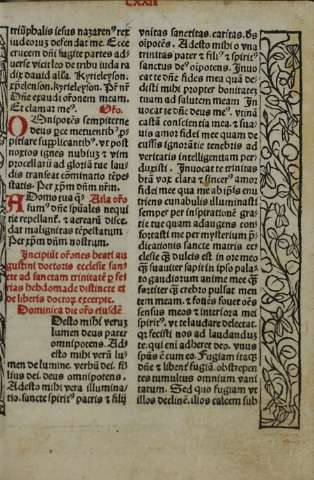 CXXII
triũphalis iesus nazarenꝰ rex
iudeorũ defendat me. Ecce
crucem dñi fugite partes ad-
uerse vicit leo de tribu iuda ra
dix dauid alla. Kyrieleyson.
xp̃eleyson. kyrieleyson. Pr̃ nr̃
Dñe exaudi orõnem meam.
Et clamor meꝰ. Orõ.
OMnipotẽs sempiterne
deus qui
pitiare supplicantibꝰ. vt post
noxios ignes nubiũ ⁊ vim
procellarũ ad gloriã tue lau-
dis transeat cõminatio tẽpe-
statis. Per xp̃m dñm nr̃m.
A Domo tua Alia oro
fumꝰ dñe spũales nequi-
tie repellant̃. ⁊ aerearũ disce-
dat malignitas tẽpestatum
Per xp̃m dñm nostrum.
Incipiũt orõnes beati au-
gustini doctoris ecclesie san-
cte ad sanctam trinitatẽ ꝑ se-
rias hebdomade distincte et
de libris doctoꝝ excerpte.
Dominica die orõ eiusdẽ
ADesto mihi verũ
lumen deus pater
omnipotens. Ad-
esto mihi verũ lu-
men de lumine. verbũ dei. fi-
lius dei. deus omnipotens.
Adesto mihi vera illumina-
tio. sancte spirit̃ꝰ patris ⁊ filij
vnitas sanctitas. caritas. dꝰs
oĩpotẽs. Adesto mihi o vna
trinitas pater ⁊ fili ⁊ spirit̃ꝰ
sanctus deꝰ oĩpotens. Inuo-
cat te dñe fides mea quã de-
disti mihi propter bonitatẽ
tuam ad salutem meam. In
uocat te dñe deus meꝰ. viua
castã consciẽtia mea. ⁊ su-
uis amor fidei mee quam de
cussis ignorãtie tenebris ad
veritatis intelligentiam per
duxisti. Inuocat te trinitas
btã voꝝ clara ⁊ sincerꝰ amor
fidei mee qua me ab ipsis eni
trienꝰ cunabulis illuminasti
semper per inspirationẽ gra-
tie tue quam adaugens con-
fortasti me per mysteriũ pre-
dicationis sancte matris ec-
clesie dulcis est in ore meo
suauiter sapit in ipso pala-
to gaudiorum anime mee
fortiter ereb̃o pulsat men
tem meam. ⁊ fouẽs fouet oẽs
sensus meos ⁊ interiora mei
spirit̃ꝰ. vt te laudare delectat.
qr fecisti nos ad laudandũ
te. qui eni adheret deo. vnus
spũs ẽ cum eo. Fugiam itaqꝫ
dñe ⁊ libent̃ fugiã. obstrepen
tes tumultus omnium vani
tatum. Sed quo fugiam vt
illos declinẽ. illos calcem sub